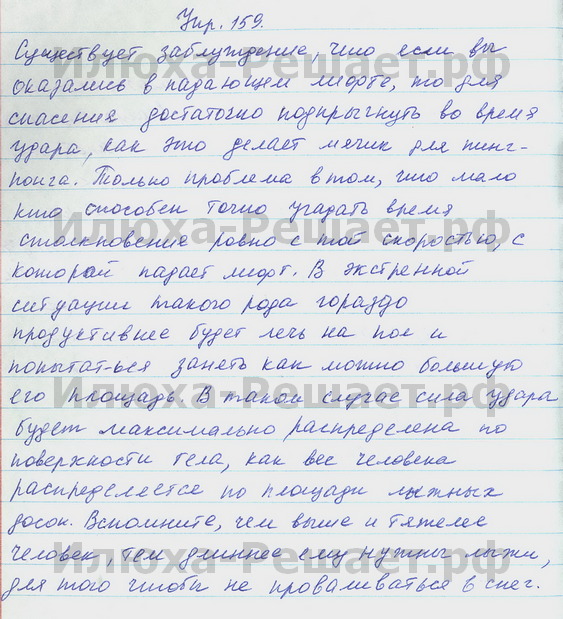 Упр. 159.
Существует заблуждение, что если вы
Илюха-Решает.рф
оказались в падающем лифте, то для
спасения достаточно подпрыгнуть во время
удара, как это делает мячик для пинг-
понга. Только проблема в том, что мало
кто способен точно угадать время
Илюха-Решает.рф
столкновение ровно с той скоростью, с
которой падает лифт. В экстренной
ситуации такого рода гораздо
продуктивнее будет лечь на пол и
попытаться занять как можно большую
Илюха-Решает.рф
его площадь. В таком случае сила удара
будет максимально распределена по
поверхности тела, как вес человека
распределяется по площади лыжных
досок. Вспомните, чем выше и тяжелее
Илюха-Решает.рф
человек, тем длиннее ему нужны лыжи,
для того чтобы не проваливаться в снег.